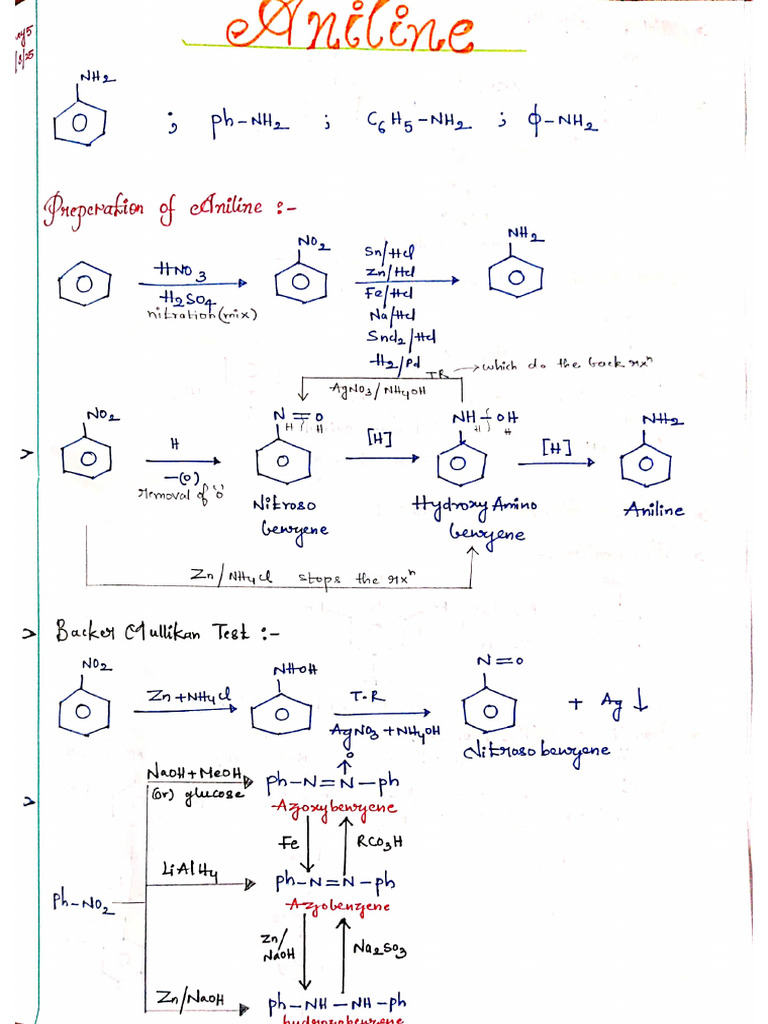 Aniline
NH2
; ph-NH2 ; C6H5-NH2 ; ϕ-NH2
Preperation of Aniline :-
HNO3
H2SO4
nitration(mix)
NO2
Sn/Hcl
Zn/Hcl
Fe/Hcl
Na/Hcl
Sncl2/Hcl
H2/Pd
NH2
T.R → which do the back rxn
AgNO3/NH4OH
NO2
H
-(O)
removal of 'o'
N=O
H H
Nitroso
benzene
[H]
NH-OH
H H
Hydroxy Amino
benzene
[H]
NH2
Aniline
Zn/NH4cl stops the rxn
> Backer Mullikan Test :-
NO2
Zn+NH4cl
NHOH
T.R
AgNO3+NH4OH
N=O
Nitrosobenzene
+ Ag ↓
NaOH+MeOH
(or) glucose
O
ph-N=N-ph
Azoxybenzene
Fe
RCO3H
ph-NO2
LiAlH4
ph-N=N-ph
Azobenzene
Zn/
NaOH
Na2SO3
Zn/NaOH
ph-NH-NH-ph
hydrazobenzene